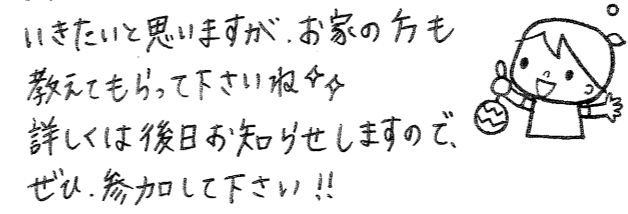 いきたいと思いますが、お家の方も
教えてもらって下さいね✧✧
詳しくは後日お知らせしますので、
ぜひ、参加して下さい!!